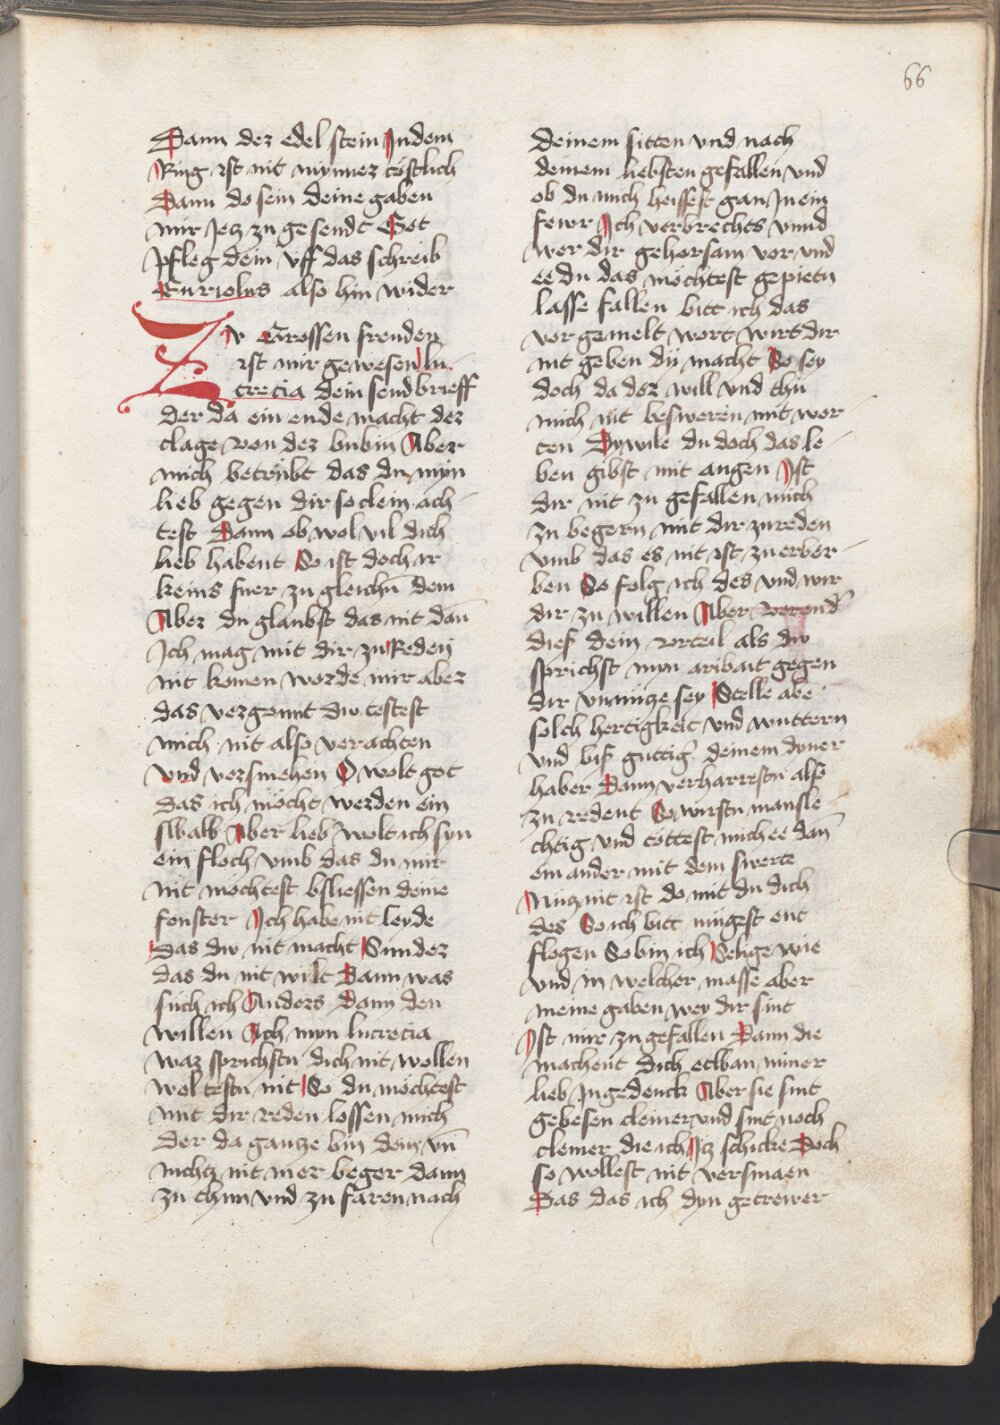 66
Dann der edel stein Jn dem
Ring ist nit mynner cöstlich
Dann do sein deine gaben
mir Jetz zu gesendt Got
pfleg dein vff das schreib
Euriolus also hin wider
Zv Grossen freuden
ist mir gewesen lu
crecia dein sendbrieff
der da ein ende macht der
clage von der bubin Aber
mich betrübt das du myn
lieb gegen dir so clein ach-
test Dann ob wol vil dich
lieb habent So ist doch ir
keins fuer zu gleichn̄ dem
Aber du glaubst das nit dan̄
Jch mag mit dir zu Reden
nit komen worde mir aber
das vergonnt du testest
mich nit also verachten
vnd versmehen O wolt got
das ich möcht werden ein
slbalb Aber lieb wolt ich syn
ein floch vmb das du mir
nit möchtest bsliessen deine
fenster Jch habe nit leyde
Das du nit macht Sunder
das du nit wilt Dann was
such ich Anders Dann den
willen Ach myn lucrecia
waz sprichstu dich nit wollen
wol testu nit So du möchtest
mit dir reden lossen mich
der da gantze bin dein vn̄
nichtz nit mer beger dann
zu thun vnd zu faren nach
deinem sitten vnd nach
deinem liebsten gefallen vnd
ob du mich heissest gan Jn ein
fewr Jch verbrechts vnnd
wer dir gehorsam vor vnd
ee du das möchtest gepietn
lasse fallen bitt ich das
vorgemelt wort wirt dir
nit geben du macht So sey
doch da der will vnd thu
mich nit besweren mit wor-
ten Dywile du doch das le-
ben gibst mit augen Jst
dir nit zu gefallen mich
zu begern mit dir zu reden
vmb das es nit ist zu erber-
ben So folg ich des vnd wir
dir zu willen Aber
dies dein vrteil als du
sprichst myn aribait gegen
dir vnnütze sey Stelle abe
solch hertigkeit vnd wuttern
vnd bis guttig deinem dyner
haber Dann verharrestu also
zu redent So wirstu mansle-
chtig vnd töttest mich ee dan̄
ein ander mit dem swerte
nit ist do mit du dich
des So ich bitt mügest ent
flogen So bin ich Selige wie
vnd in welcher masse aber
meine gaben wey dir sint
Jst mir zu gefallen Dann die
machent dich etlban miner
lieb Jngedenck Aber sie sint
gebesen cleiner vnd sint noch
cleiner die ich Jtz schicke Doch
so wollest nit versmaen
Das das ich dyn getrewer